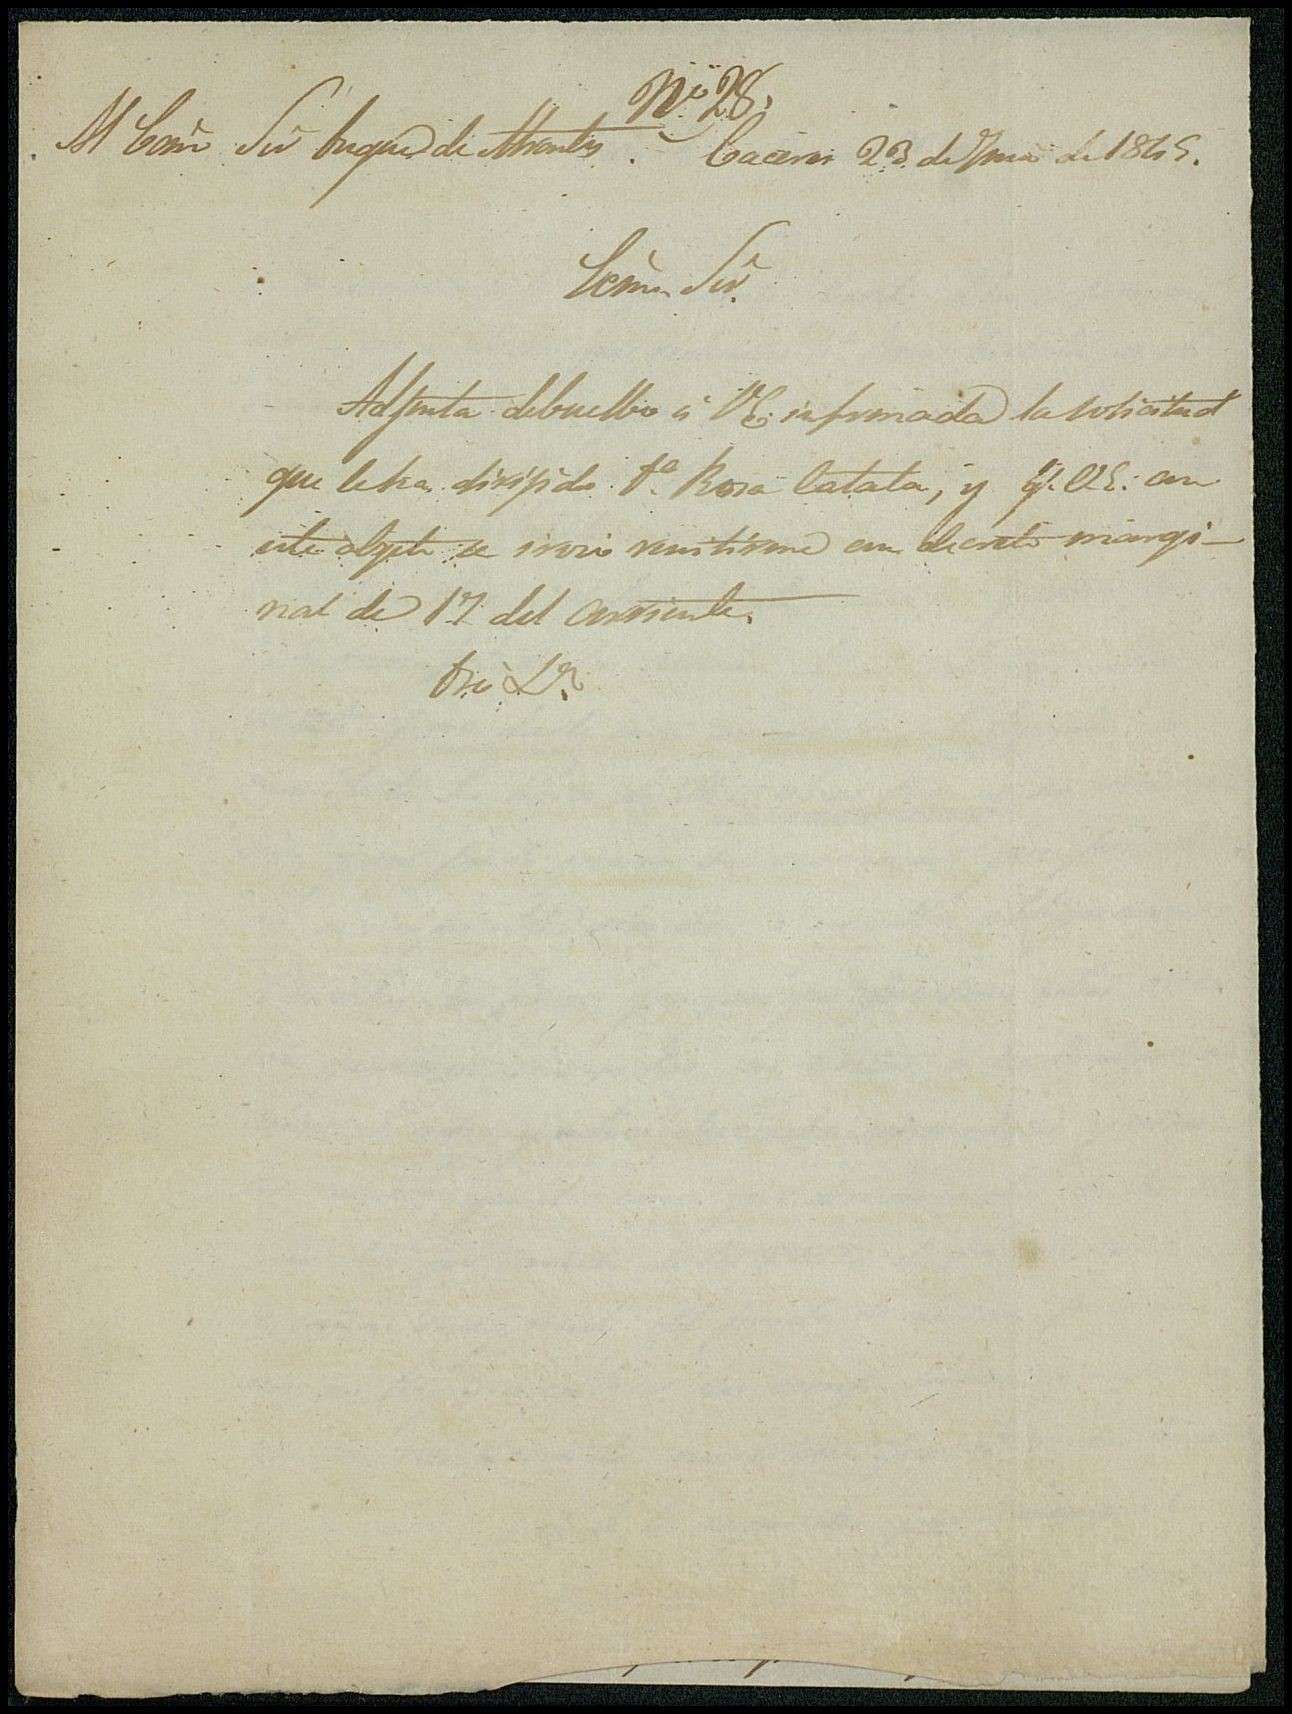 Nº 28.
Al Excmo Sor Duque de Abrantes. Caceres 23 de Junio de 1845.
Excmo Sor
Adjunta debuelbo á V.E. informada la solicitud
que le ha dirijido Dª Rosa Catata, y q. V.E. con
este objeto se sirvió remitirme con decreto margi-
nal de 17 del corriente.